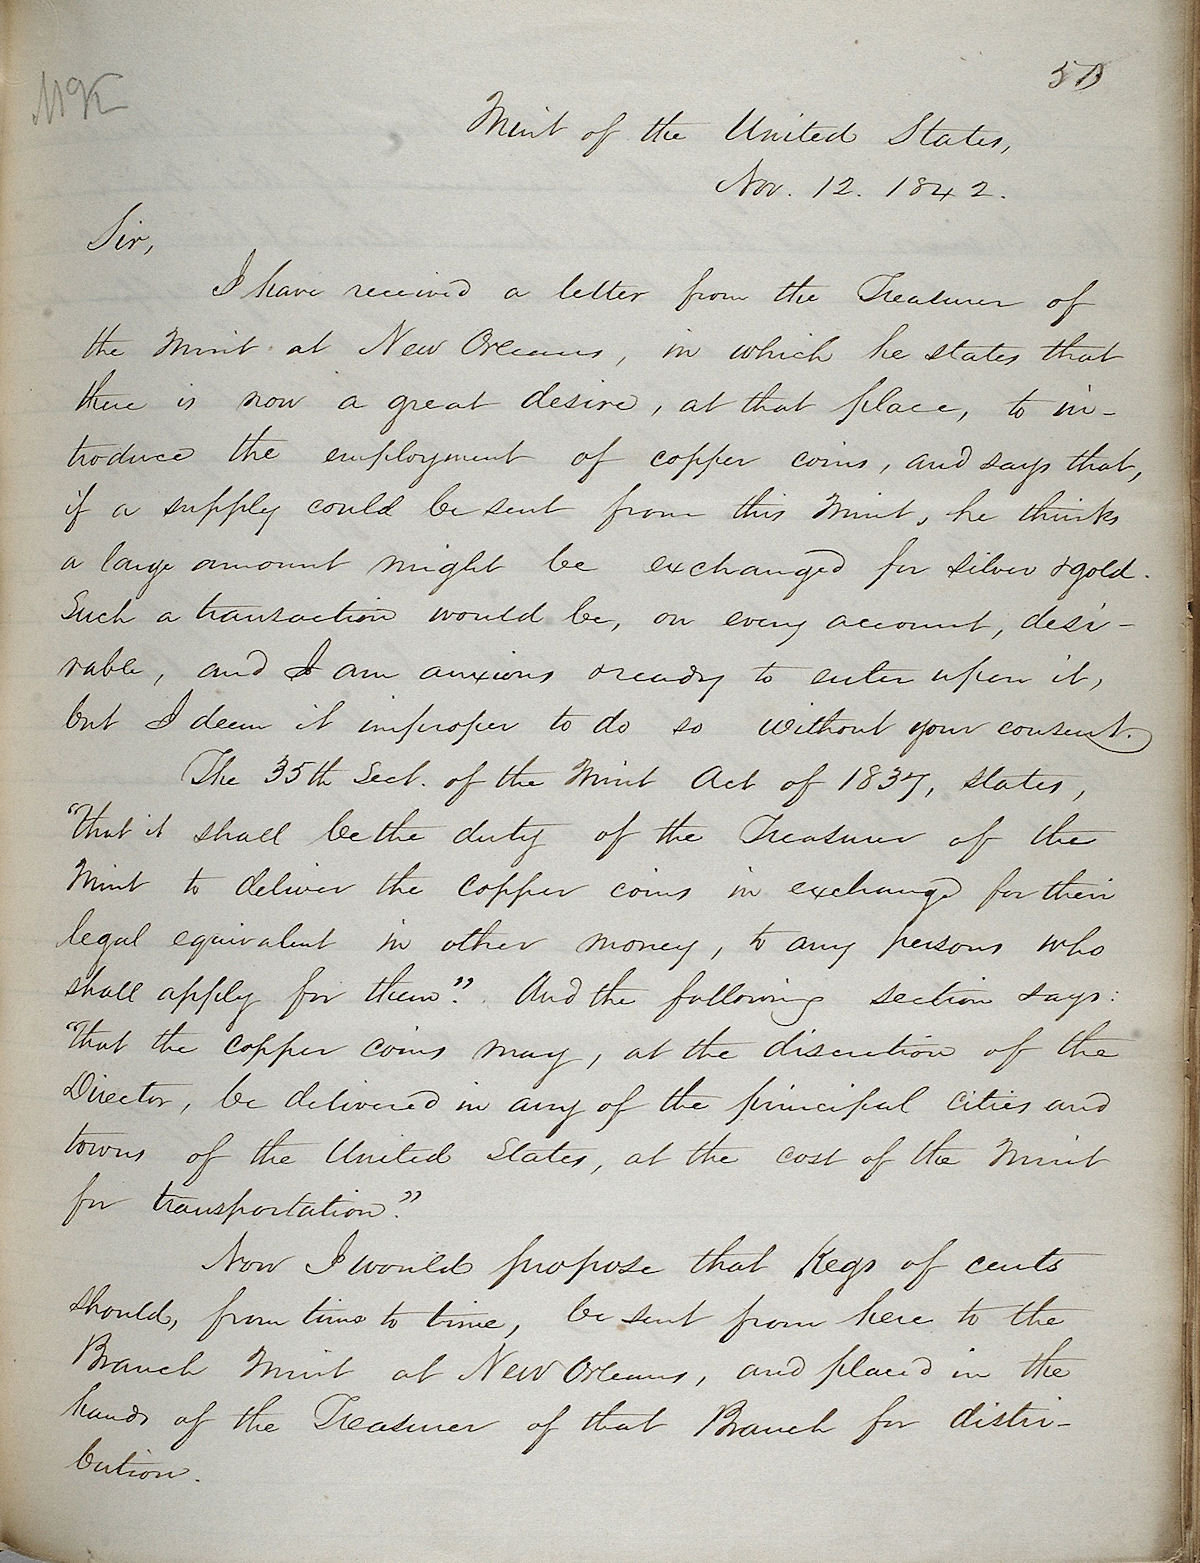 Mint of the United States,
Nov. 12. 1842.
Sir,
I have received a letter from the Treasurer of
the Mint at New Orleans, in which he states that
there is now a great desire, at that place, to in-
troduce the employment of copper coins, and says that,
if a supply could be sent from this Mint, he thinks
a large amount might be exchanged for silver & gold.
Such a transaction would be, on every account, desi-
rable, and I am anxious & ready to enter upon it,
but I deem it improper to do so without your consent.
The 35th Sect. of the Mint Act of 1837, states,
"that it shall be the duty of the Treasurer of the
Mint to deliver the copper coins in exchange for their
legal equivalent in other money, to any persons who
shall apply for them". And the following section says:
"That the copper coins may, at the discretion of the
Director, be delivered in any of the principal cities and
towns of the United States, at the cost of the Mint
for transportation."
Now I would propose that Kegs of cents
should, from time to time, be sent from here to the
Branch Mint at New Orleans, and placed in the
hands of the Treasurer of that Branch for distri-
bution.